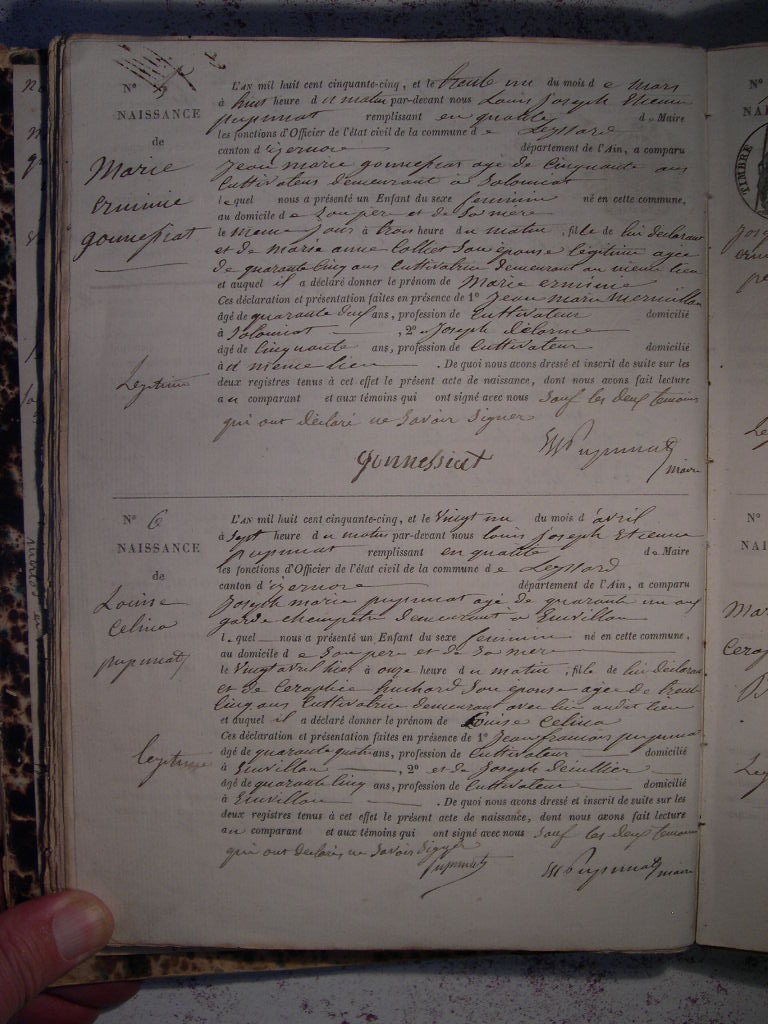 N° 5
NAISSANCE
de
Marie
erminie
gonnessiat
Legitime
L'AN mil huit cent cinquante-cinq, et le trente un du mois d e mars
à huit heure d u matin par-devant nous Louis Joseph Etienne
pupunat remplissant en qualité de Maire
les fonctions d'Officier de l'état civil de la commune d e Leyssard
canton d'izernore département de l'Ain, a comparu
Jean marie gonnessiat agé de Cinquante ans
Cultivateur demeurant à Solomiat
lequel nous a présenté un Enfant du sexe feminin né en cette commune,
au domicile d e son pere et de sa mere
le meme jour à trois heure du matin, fille de lui declarant
et de marie anne Collet son épouse légitime agee
de quarante cinq ans Cultivatrice demeurant au meme lieu
et auquel il a déclaré donner le prénom de Marie erminie
Ces déclaration et présentation faites en présence de 1° Jean marie mermillon
âgé de quarante deux ans, profession de Cultivateur domicilié
à Solomiat , 2° Joseph delorme
âgé de Cinquante ans, profession de Cultivateur domicilié
à u meme lieu . De quoi nous avons dressé et inscrit de suite sur les
deux registres tenus à cet effet le présent acte de naissance, dont nous avons fait lecture
a u comparant et aux témoins qui ont signé avec nous sauf les deux temoins
qui ont déclaré ne savoir signer
gonnessiat
pupunat maire
N° 6
NAISSANCE
de
Louise
Celina
pupunat
legitime
L'AN mil huit cent cinquante-cinq, et le Vingt un du mois d'avril
à Sept heure d u matin par-devant nous louis Joseph Etienne
pupunat remplissant en qualité de Maire
les fonctions d'Officier de l'état civil de la commune d e Leyssard
canton d'izernore département de l'Ain, a comparu
Joseph marie pupunat agé de quarante un ans
garde champêtre demeurant à
lequel nous a présenté un Enfant du sexe feminin né en cette commune,
au domicile d e son pere et de sa mere
le Vingt avril hier à onze heure d u matin, fille de lui déclarant
et de Ceraphie huchard son épouse agee de trente
Cinq ans Cultivatrice demeurant avec lui audit lieu
et auquel il a déclaré donner le prénom de Louise Celina
Ces déclaration et présentation faites en présence de 1° Jean francois pupunat
âgé de quarante quatre ans, profession de Cultivateur domicilié
à , 2° et de Joseph
âgé de quarante Cinq ans, profession de Cultivateur domicilié
à . De quoi nous avons dressé et inscrit de suite sur les
deux registres tenus à cet effet le présent acte de naissance, dont nous avons fait lecture
au comparant et aux témoins qui ont signé avec nous sauf les deux temoins
qui ont declarés ne savoir
pupunat
pupunat maire
N°
TIMBRE
N°